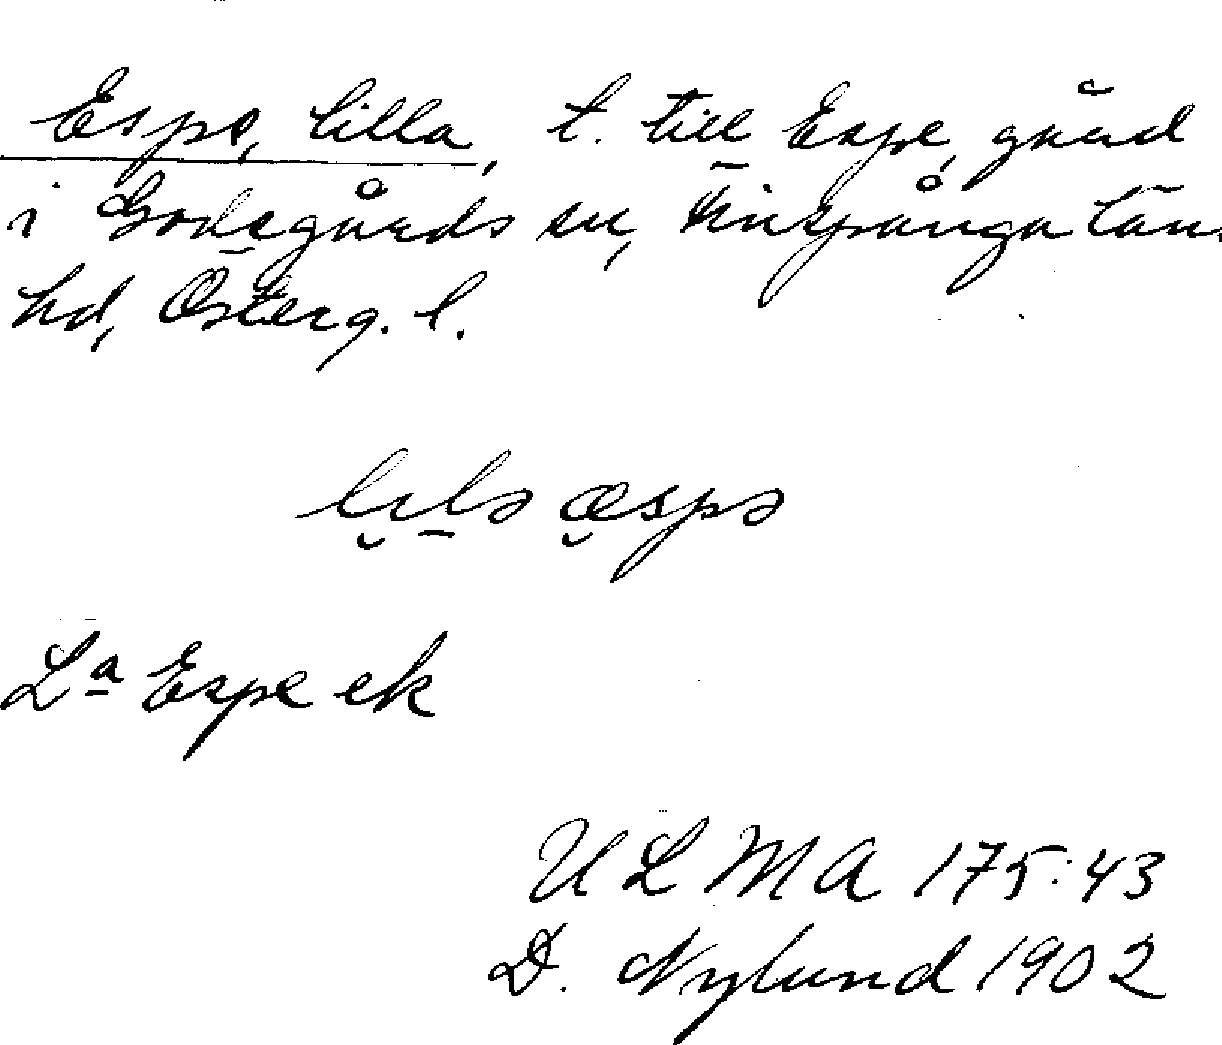 Espe, lilla, t. till Espe, gård
i Godegårds sn, Finspånga län
hd, Österg. l.
lɩlə æspə
Lª Espe ek
ULMA 175:43
D. Nylund 1902